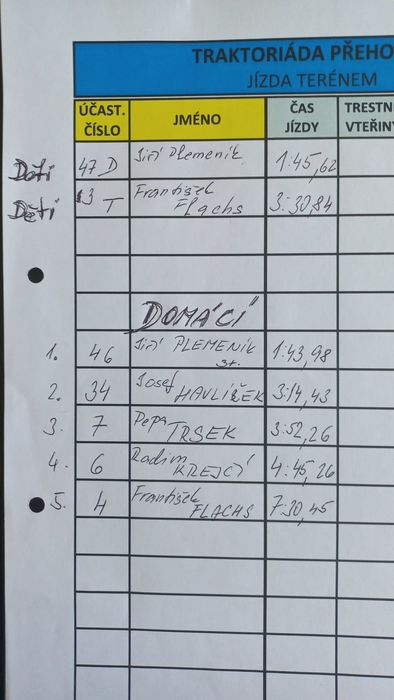 TRAKTORIÁDA PŘEHO
JÍZDA TERÉNEM
ÚČAST. ČÍSLO JMÉNO ČAS JÍZDY TRESTN VTEŘINY
Děti 47 D Jiří Plemeník 1:45,62
Děti 13 T František Flachs 3:30,84
DOMÁCÍ
1. 46 Jiří PLEMENÍK st. 1:43,98
2. 34 Josef HAVLÍČEK 3:14,43
3. 7 Pepa TRSEK 3:52,26
4. 6 Radim KREJČÍ 4:45,26
5. 4 František FLACHS 7:30,45